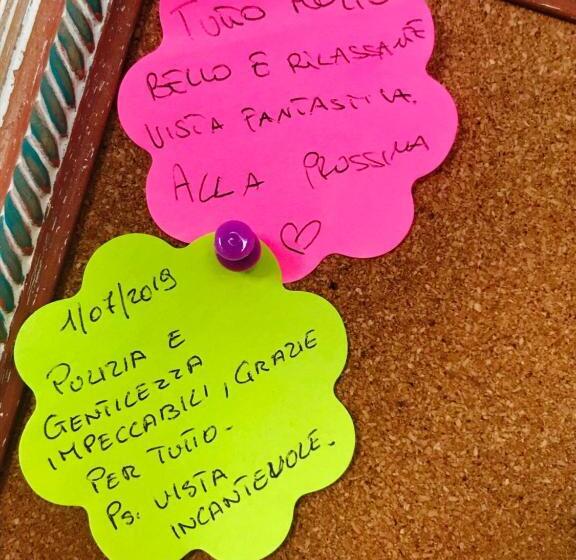 TUTTO MOLTO
BELLO E RILASSANTE
VISTA FANTASTICA.
ALLA PROSSIMA
♡
1/07/2019
PULIZIA E
GENTILEZZA
IMPECCABILI, GRAZIE
PER TUTTO.
PS: VISTA
INCANTEVOLE.